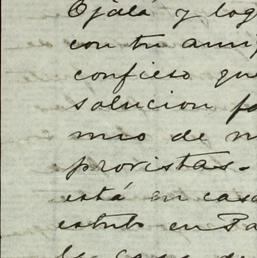 Ojalá y log
con tu ami
confieso que
solucion fa
mio de m
provistas-
está en casa
estub en Pa